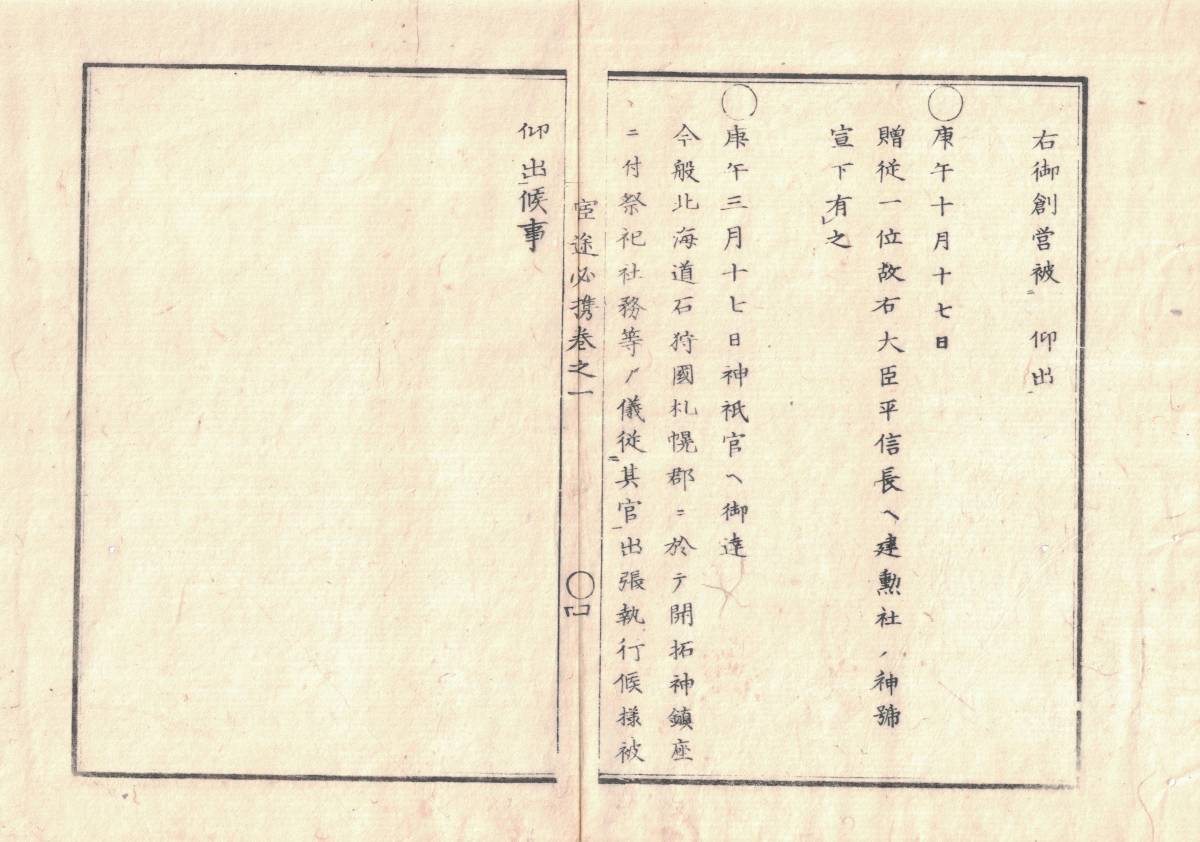 右御創営被 仰出
〇庚午十月十七日
贈従一位故右大臣平信長ヘ建勲社ノ神號
宣下有之
〇庚午三月十七日神祇官ヘ御達
今般北海道石狩國札幌郡ニ於テ開拓神鎮座
ニ付祭祀社務等ノ儀従其官出張執行候様被
宦途必携巻之一 〇四
仰出候事